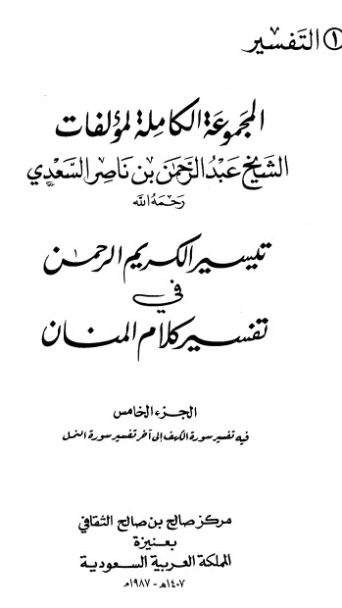 ① التفسير
المجموعة الكاملة لمؤلفات
الشيخ عبد الرحمن بن ناصر السعدي
رحمه الله
تيسير الكريم الرحمن
في
تفسير كلام المنان
الجزء الخامس
فيه تفسير سورة الكهف إلى آخر تفسير سورة النمل
مركز صالح بن صالح الثقافي
بعنيزة
المملكة العربية السعودية
١٤٠٧هـ - ١٩٨٧م